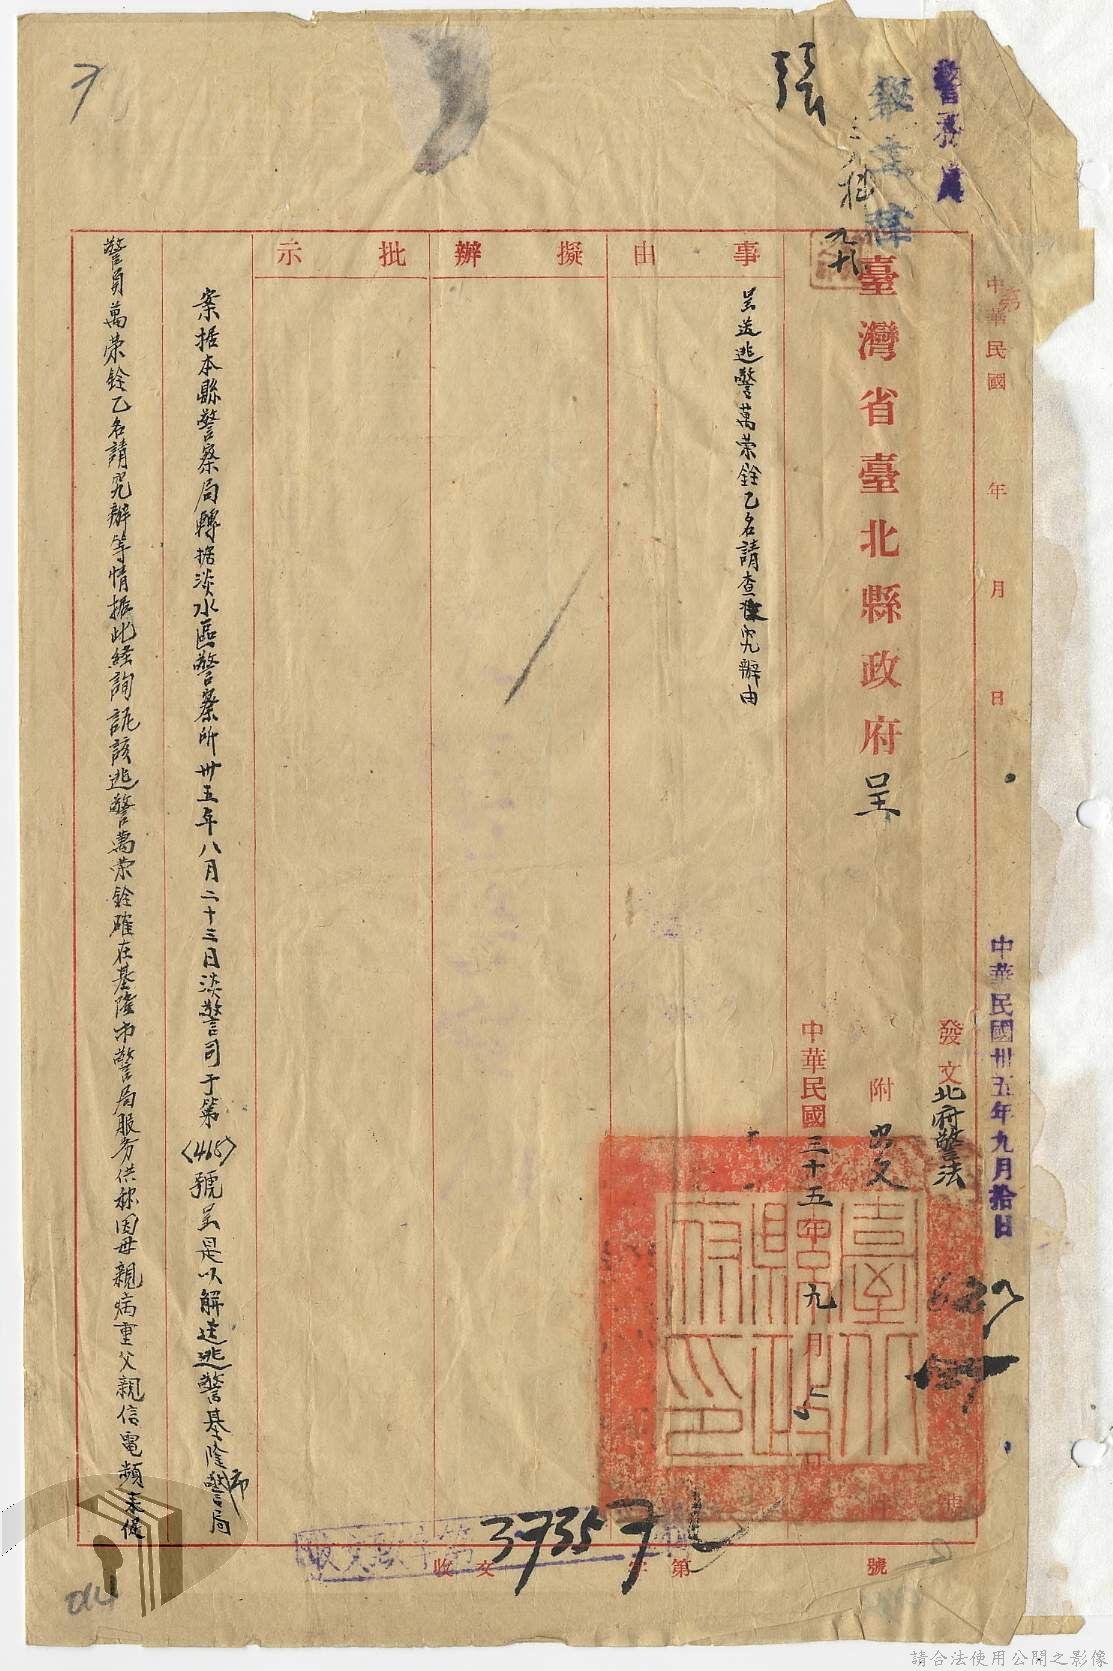 警務處
張
九
中華民國　年　月　日
中華民國卅五年九月拾日
發文北府警法
臺灣省臺北縣政府呈
附
中華民國三十五年九月
事由
擬辦
批示
呈送逃警萬荣銓乙名請查 究辦由
案据本縣警察局轉据淡水區警察所卅五年八月二十三日淡警司于第(465)號呈是以解送逃警基隆市警局
警員萬荣銓乙名請究辦等情據此経詢 該逃警萬荣銓確在基隆市警局服务供称因母親病重父親信電頻来促
收文 字第 號
37357
臺北縣政府印
請合法使用公開之影像